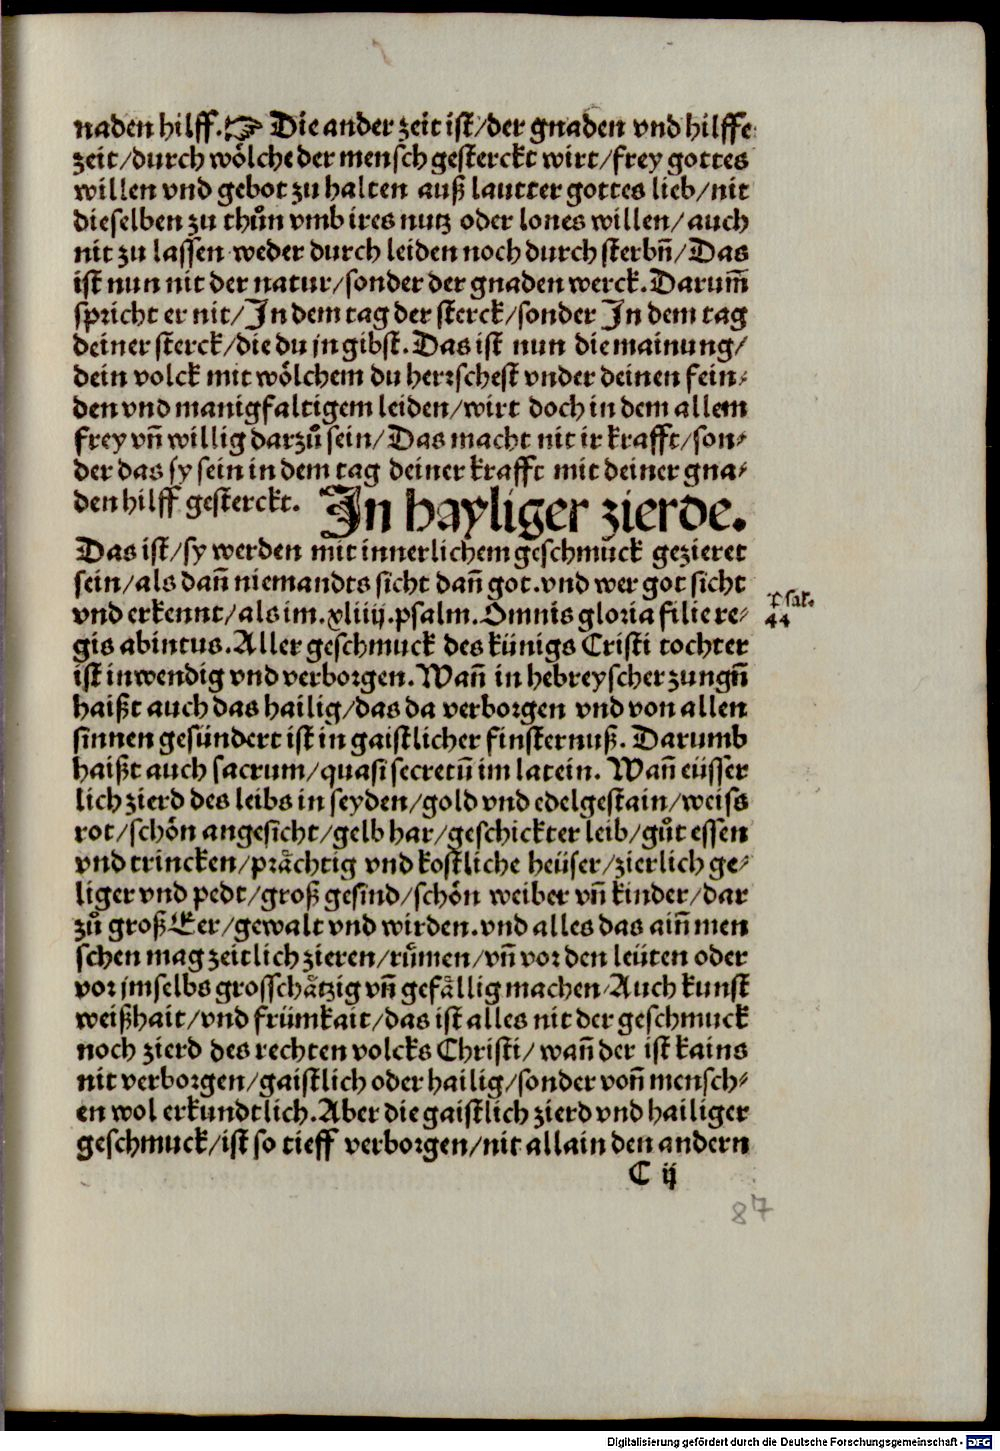 naden hilff.☞ Die ander zeit ist/der gnaden vnd hilffe
zeit/durch wölche der mensch gesterckt wirt/frey gottes
willen vnd gebot zu halten auß lautter gottes lieb/nit
dieselben zu thůn vmb ires nutz oder lones willen/auch
nit zu lassen weder durch leiden noch durch sterbn̄/Das
ist nun nit der natur/sonder der gnaden werck.Darum̄
spricht er nit/In dem tag der sterck/sonder In dem tag
deiner sterck/die du jn gibst.Das ist nun die mainung/
dein volck mit wölchem du herrschest vnder deinen fein⸗
den vnd manigfaltigem leiden/wirt doch in dem allem
frey vn̄ willig darzů sein/Das macht nit ir krafft/son⸗
der das sy sein in dem tag deiner krafft mit deiner gna⸗
den hilff gesterckt. In hayliger zierde.
Das ist/sy werden mit innerlichem geschmuck gezieret
sein/als dan̄ niemandts sicht dan̄ got.vnd wer got sicht
vnd erkennt/als im.xliiij.psalm.Omnis gloria filie re⸗
gis abintus.Aller geschmuck des künigs Cristi tochter
ist inwendig vnd verborgen.Wan̄ in hebreyscher zungn̄
haißt auch das hailig/das da verborgen vnd von allen
sinnen gesündert ist in gaistlicher finsternuß. Darumb
haißt auch sacrum/quasi secretū im latein. Wan̄ eüsser
lich zierd des leibs in seyden/gold vnd edelgestain/weiss
rot/schön angesicht/gelb har/geschickter leib/gůt essen
vnd trincken/prächtig vnd kostliche heüser/zierlich ge⸗
liger vnd pedt/groß gesind/schön weiber vn̄ kinder/dar
zů groß Eer/gewalt vnd wirden.vnd alles das ain̄ men
schen mag zeitlich zieren/růmen/vn̄ vor den leüten oder
vor jmselbs grosschätzig vn̄ gefällig machen/Auch kunst
weißhait/vnd frümkait/das ist alles nit der geschmuck
noch zierd des rechten volcks Christi/wan̄ der ist kains
nit verborgen/gaistlich oder hailig/sonder von̄ mensch⸗
en wol erkundtlich.Aber die gaistlich zierd vnd hailiger
geschmuck/ist so tieff verborgen/nit allain den andern
C ij
Psal.
44
87
Digitalisierung gefördert durch die Deutsche Forschungsgemeinschaft - DFG